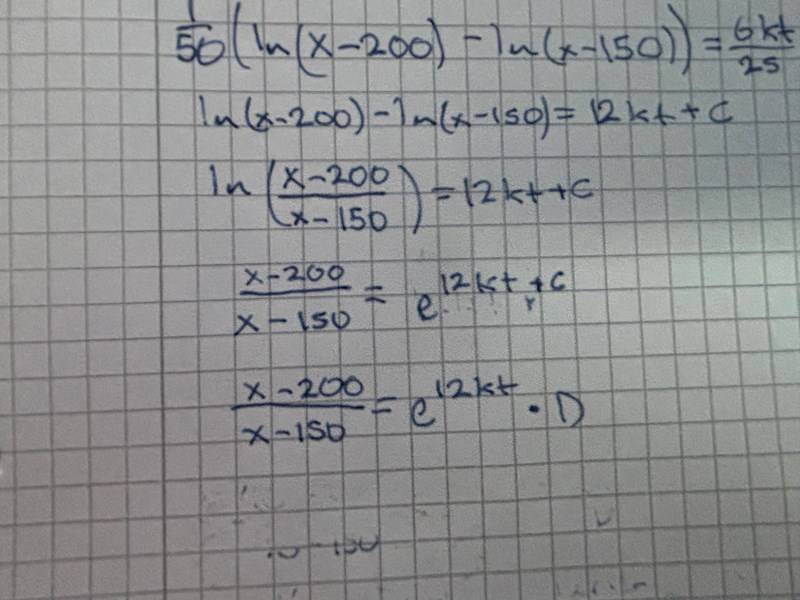 1/50 (ln(x-200) - ln(x-150)) = 6kt/25
ln(x-200) - ln(x-150) = 12kt + C
ln((x-200)/(x-150)) = 12kt + C
(x-200)/(x-150) = e^(12kt + C)
(x-200)/(x-150) = e^(12kt) · D